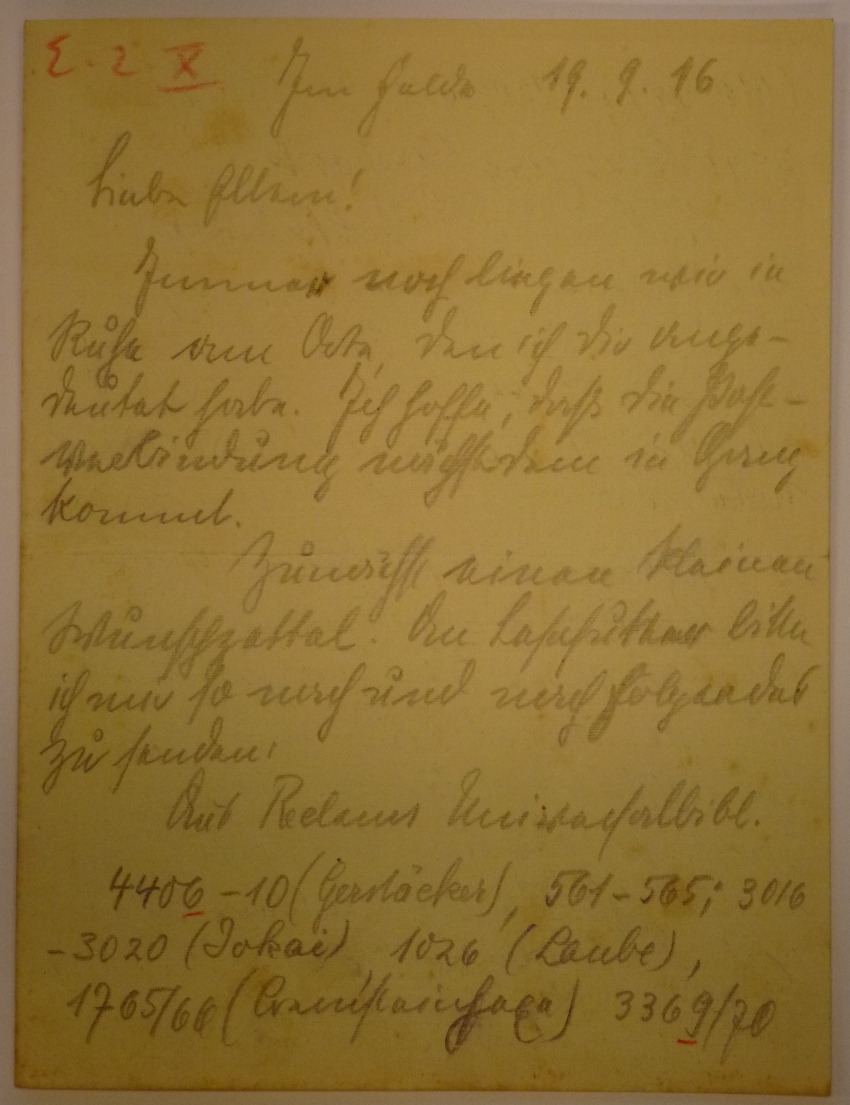 E. 2 X
Im Felde 19. 9. 16
Liebe Eltern!
Immer noch liegen wir in
Ruhe am Orte, den ich Dir ange-
deutet habe. Ich hoffe, daß die Post-
verbindung nächstdem in Gang
kommt.
Zunächst einen kleinen
Wunschzettel. An Lesefutter bitte
ich mir so nach und nach folgendes
zu senden:
Aus Reclams Universalbibl.
4406 - 10 (Gerstäcker), 561 - 565; 3016
- 3020 (Jokai) 1026 (Laube),
1765/66 ( ) 3369/70